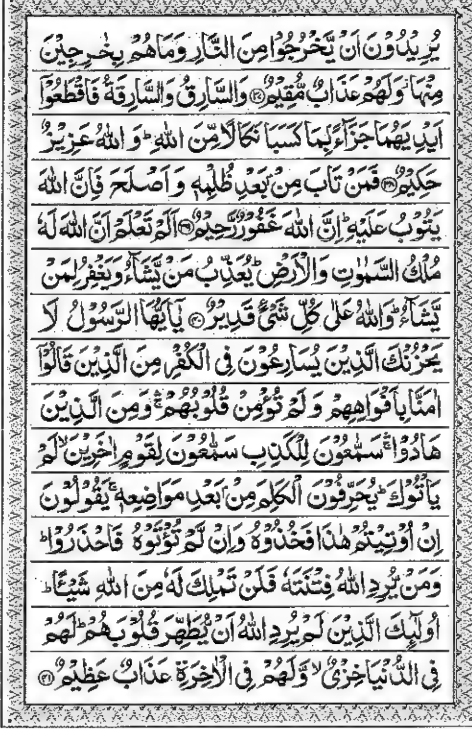 يُرِيۡدُوۡنَ اَنۡ يَّخۡرُجُوۡا مِنَ النَّارِ وَمَا هُمۡ بِخٰرِجِيۡنَ
مِنۡهَا وَلَهُمۡ عَذَابٌ مُّقِيۡمٌ ﴿۳۷﴾ وَالسَّارِقُ وَالسَّارِقَةُ فَاقۡطَعُوۡۤا
اَيۡدِيَهُمَا جَزَآءًۢ بِمَا كَسَبَا نَكَالًا مِّنَ اللّٰهِ ؕ وَاللّٰهُ عَزِيۡزٌ
حَكِيۡمٌ ﴿۳۸﴾ فَمَنۡ تَابَ مِنۡۢ بَعۡدِ ظُلۡمِهٖ وَاَصۡلَحَ فَاِنَّ اللّٰهَ
يَتُوۡبُ عَلَيۡهِ ؕ اِنَّ اللّٰهَ غَفُوۡرٌ رَّحِيۡمٌ ﴿۳۹﴾ اَلَمۡ تَعۡلَمۡ اَنَّ اللّٰهَ لَهٗ
مُلۡكُ السَّمٰوٰتِ وَالۡاَرۡضِ ؕ يُعَذِّبُ مَنۡ يَّشَآءُ وَيَغۡفِرُ لِمَنۡ
يَّشَآءُ ؕ وَاللّٰهُ عَلٰى كُلِّ شَىۡءٍ قَدِيۡرٌ ﴿۴۰﴾ يٰۤاَيُّهَا الرَّسُوۡلُ لَا
يَحۡزُنۡكَ الَّذِيۡنَ يُسَارِعُوۡنَ فِى الۡكُفۡرِ مِنَ الَّذِيۡنَ قَالُوۡۤا
اٰمَنَّا بِاَفۡوَاهِهِمۡ وَلَمۡ تُؤۡمِنۡ قُلُوۡبُهُمۡ ۛۚ وَمِنَ الَّذِيۡنَ
هَادُوۡا ۛۚ سَمّٰعُوۡنَ لِلۡكَذِبِ سَمّٰعُوۡنَ لِقَوۡمٍ اٰخَرِيۡنَ ۙ لَمۡ
يَاۡتُوۡكَ ؕ يُحَرِّفُوۡنَ الۡكَلِمَ مِنۡۢ بَعۡدِ مَوَاضِعِهٖ ۚ يَقُوۡلُوۡنَ
اِنۡ اُوۡتِيۡتُمۡ هٰذَا فَخُذُوۡهُ وَاِنۡ لَّمۡ تُؤۡتَوۡهُ فَاحۡذَرُوۡا ؕ
وَمَنۡ يُّرِدِ اللّٰهُ فِتۡنَتَهٗ فَلَنۡ تَمۡلِكَ لَهٗ مِنَ اللّٰهِ شَيۡـًٔا ؕ
اُولٰٓئِكَ الَّذِيۡنَ لَمۡ يُرِدِ اللّٰهُ اَنۡ يُّطَهِّرَ قُلُوۡبَهُمۡ ؕ لَهُمۡ
فِى الدُّنۡيَا خِزۡىٌ ۙ وَّلَهُمۡ فِى الۡاٰخِرَةِ عَذَابٌ عَظِيۡمٌ ﴿۴۱﴾